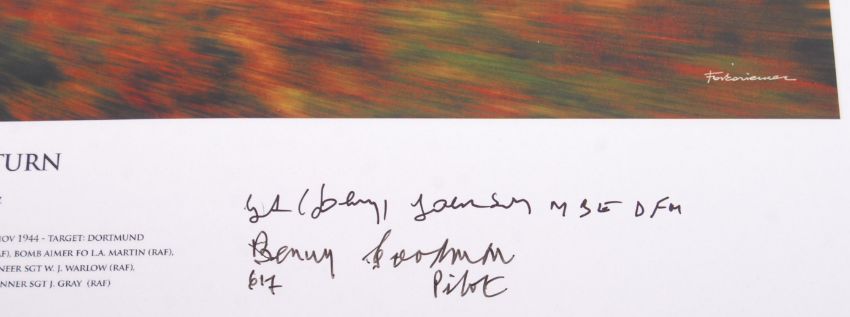 TURN
NOV 1944 - TARGET: DORTMUND
AF), BOMB AIMER FO L.A. MARTIN (RAF),
NEER SGT W. J. WARLOW (RAF),
NNER SGT J. GRAY (RAF)
(Johnny) Johnson MBE DFM
Benny Goodman
617 Pilot